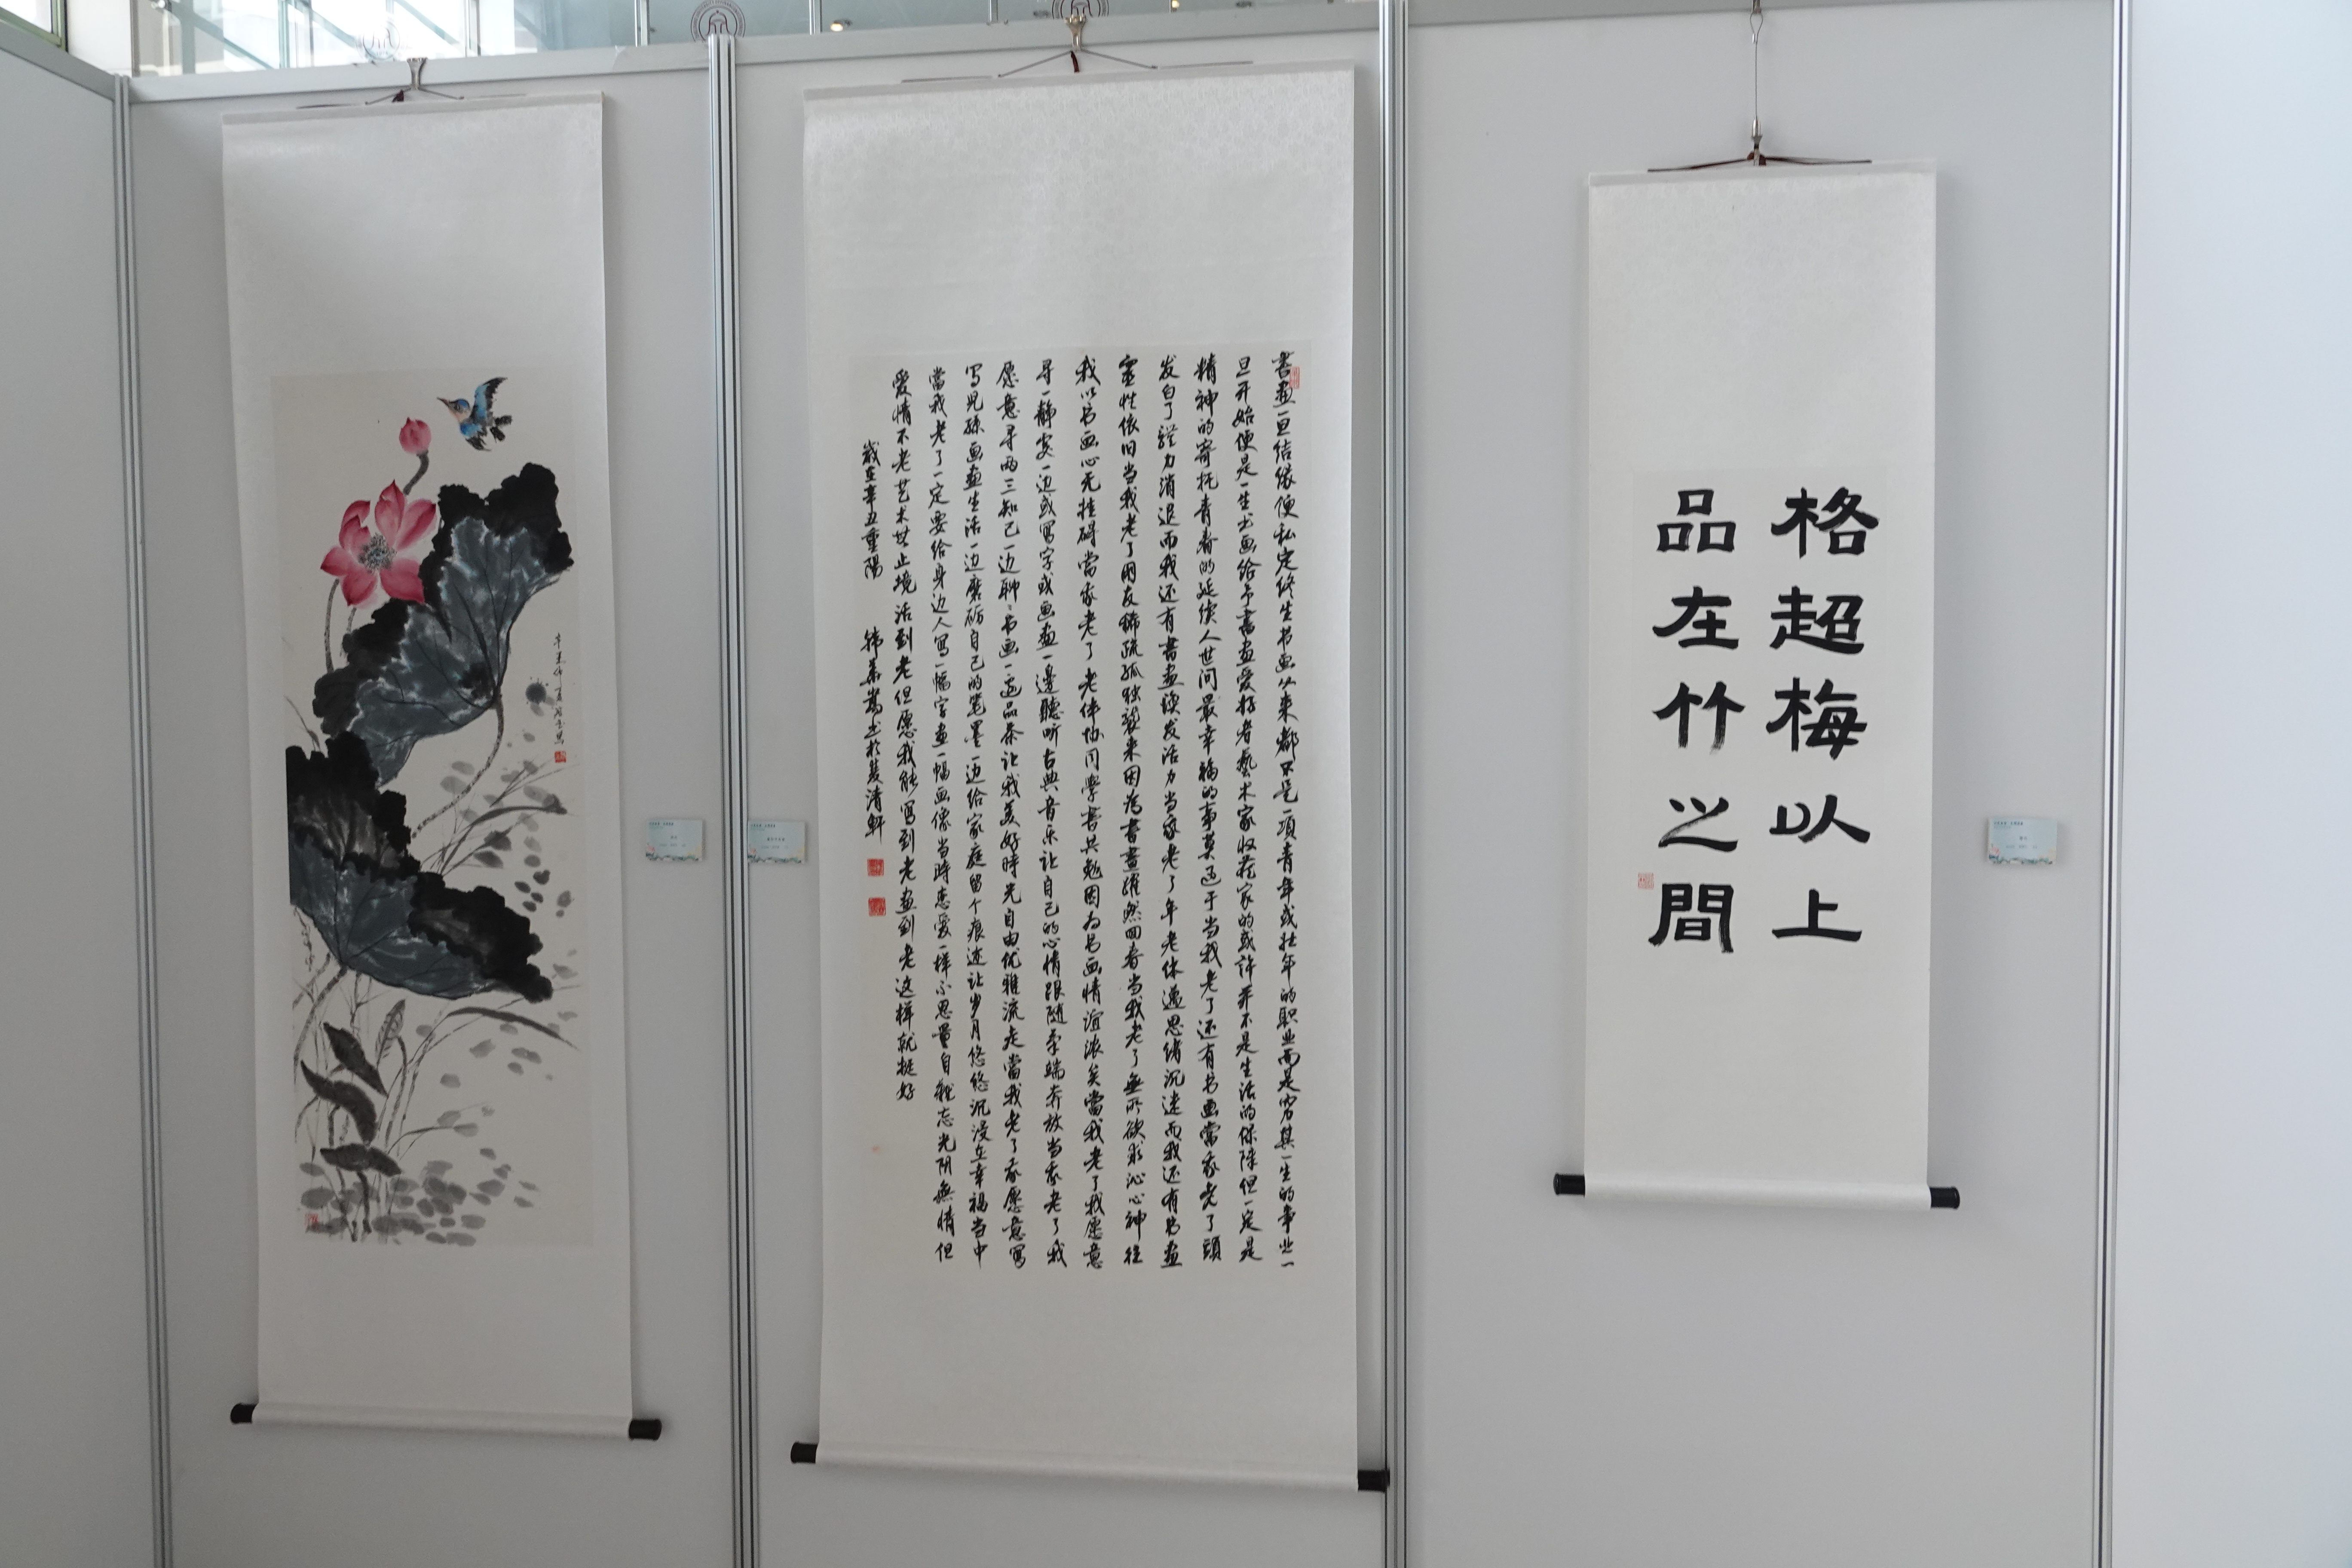 書畫一旦结缘便私定终生书画从来都不是一项青年或壮年的职业而是穷其一生的事业一
旦开始便是一生书画给予書画爱好者藝术家收藏家的或许并不是生活的保障但一定是
精神的寄托青春的延续人世间最幸福的事莫过于当我老了还有书画當我老了頭
发白了體力消退而我还有書画焕发活力当我老了年老体邁思绪沉迷而我还有书画
靈性依旧当我老了朋友稀疏孤独袭来因为書畫躍然回春当我老了無所欲求沁心神往
我以书画心无挂碍當我老了老伴协同學書共勉因为书画情谊浓矣當我老了我愿意
寻一静处一边或写字或画画一邊聽听古典音乐让自己的心情跟随柔端奔放当我老了我
愿意寻两三知己一边聊聊书画一边品茶让我美好時光自由优雅流走當我老了我愿意写
写儿孫画画生活一边磨砺自己的笔墨一边给家庭留个痕迹让岁月悠悠沉浸在幸福当中
當我老了一定要给身边人写一幅字画一幅画像当時恋爱一样不思量自難忘光阴無情但
爱情不老艺术無止境活到老但愿我能写到老画到老这样就挺好
歲在辛丑重陽 韩 清軒
格超梅以上
品在竹之間